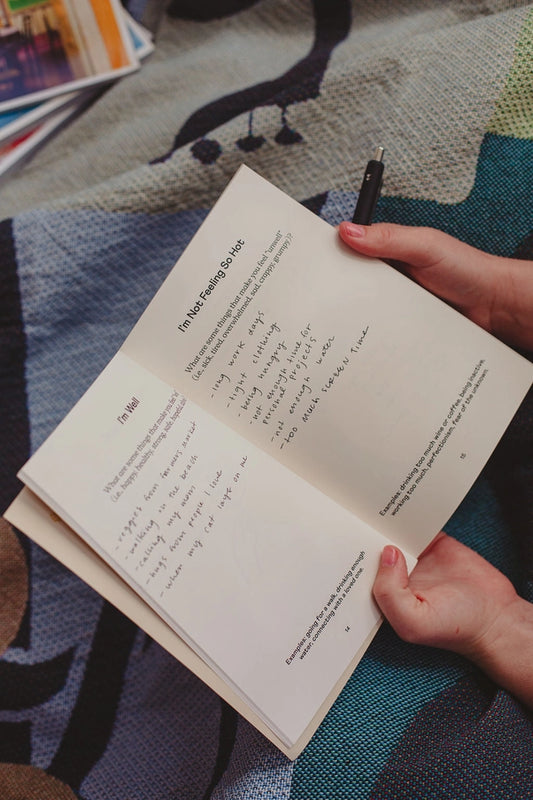 I'm Well
What are some things that make you feel
(i.e., happy, healthy, strong, safe, hopeful,
- veggies from farmers market
- walking on the beach
- calling my mom
- hugs from people I love
- when my cat lays on me
Examples: going for a walk, drinking enough
water, connecting with a loved one.
14
I'm Not Feeling So Hot
What are some things that make you feel "unwell"
(i.e., sick, tired, overwhelmed, sad, crappy, grumpy)?
- long work days
- tight clothing
- being hungry
- not enough time for
personal projects
- not enough water
- too much screen time
Examples: drinking too much wine or coffee, being inactive,
working too much, perfectionism, fear of the unknown.
15